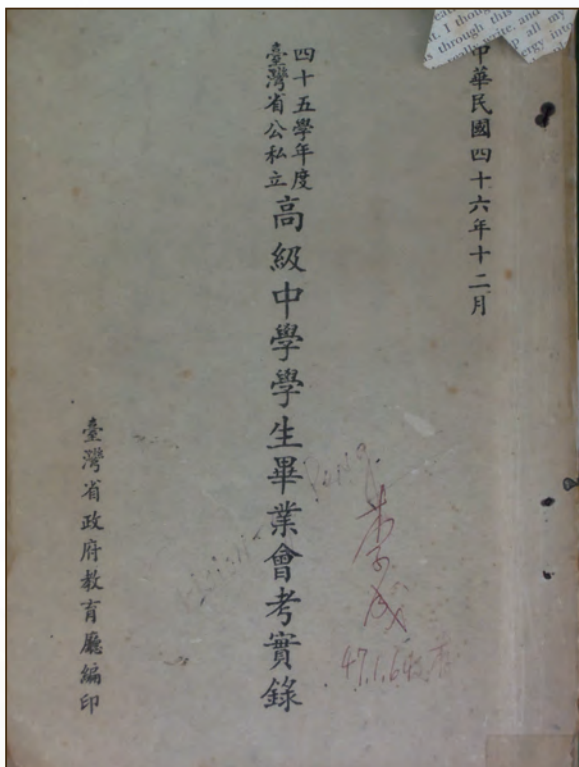 中華民國四十六年十二月
四十五學年度
臺灣省公私立
高級中學學生畢業會考實錄
臺灣省政府教育廳編印
47.1.6